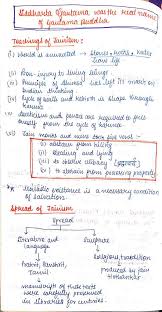 Siddharta Gautama was the real name
of Gautama Buddha
Teachings of Jainism:
(i) World is animated → Stones, rocks, water
have life
(ii) Non-injury to living beings
(iii) Principle of Ahimsa has left its mark on
Indian thinking
(iv) Cycle of birth and rebirth is shaped through
karma
(v) Asceticism and penance are required to free
oneself from the cycle of karma
(vi) Jain monks and nuns took five vows:-
(i) abstain from killing
(ii) Stealing and lying
(iii) to observe celibacy
(iv) to abstain from possessing property
* Monastic existence is a necessary condition
of salvation.
Spread of Jainism
Spread
Literature and
language
Sculpture
Prakrit, Sanskrit,
Tamil
Religious tradition
produced by Jain
→ manuscripts of these texts
were carefully preserved
in libraries for centuries.